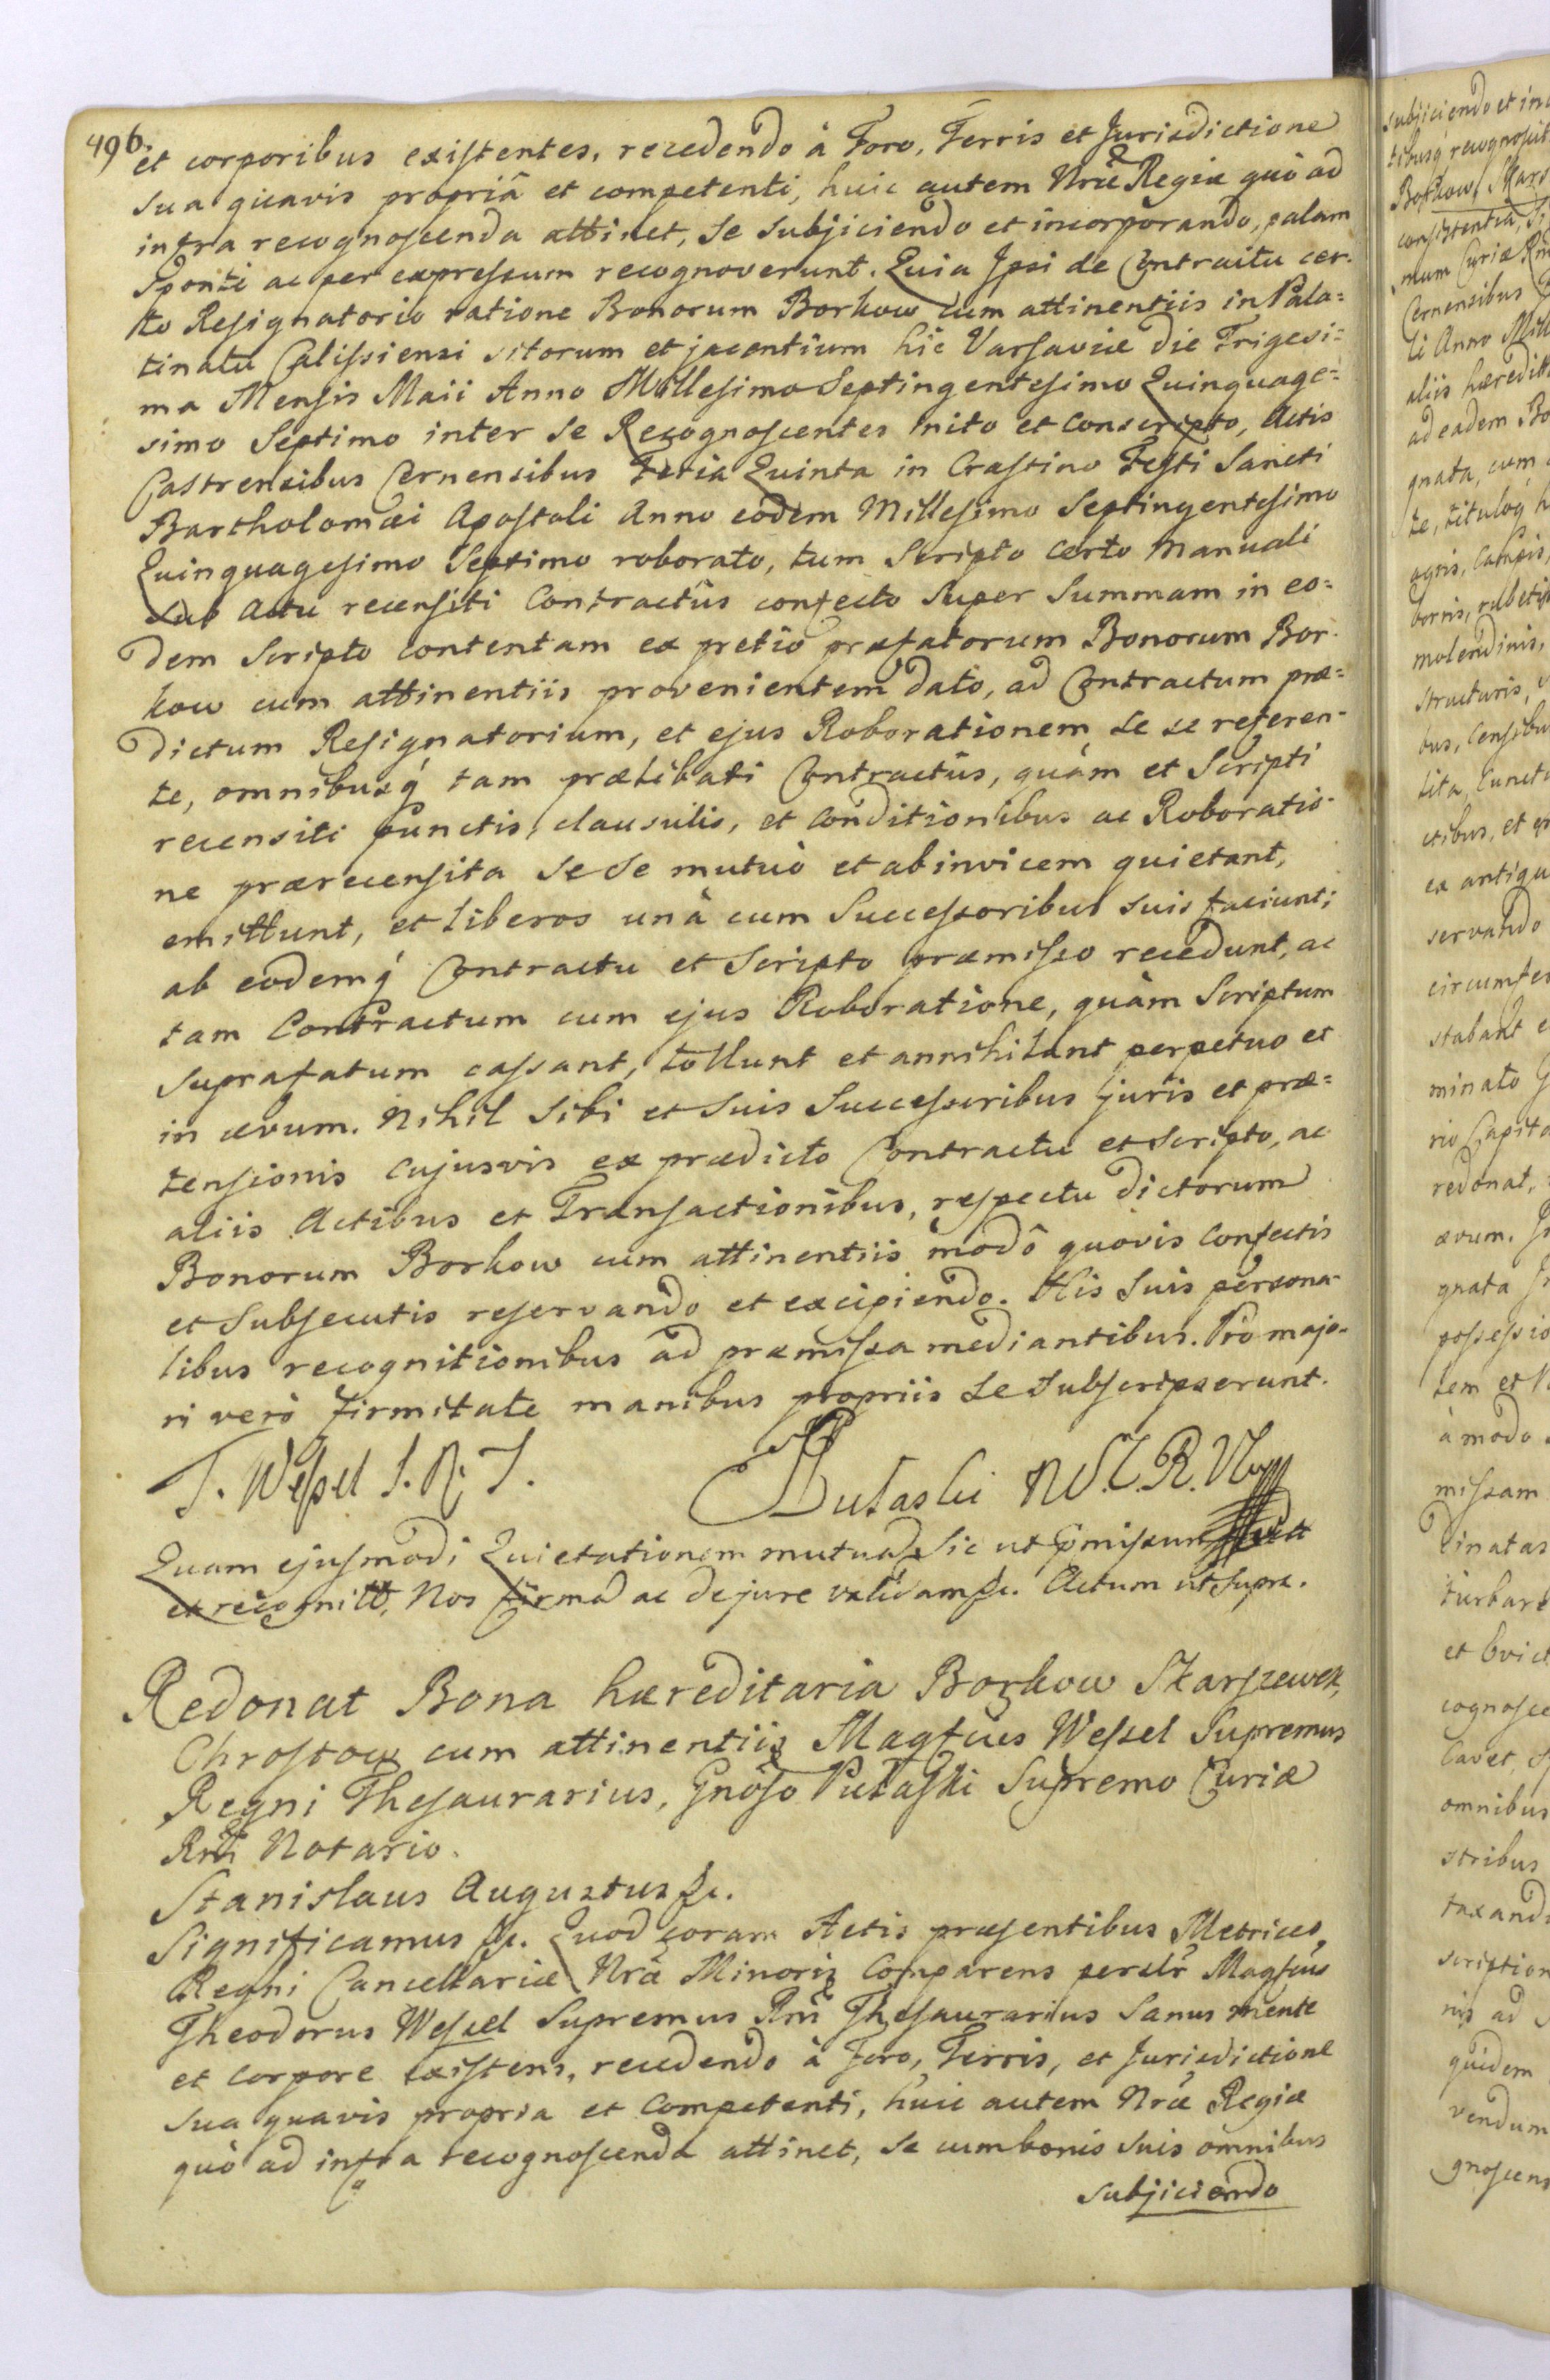 496.
et corporibus existentes, recedendo à Foro, Terris et Jurisdictione
sua quavis propriâ et competenti, huic autem Nrae Regiae quò ad
infra recognoscenda attinet, se subjiciendo et incorporando, palam
sponte ac per expressum recognoverunt. Quia Ipsi de Contractu cer-
to Resignatorio ratione Bonorum Borkow cum attinentiis in Pala=
tinatu Calissiensi sitorum et jacentium hîc Varsaviae die Trigesi=
ma Mensis Maii Anno Millesimo Septingentesimo Quinquage=
simo Septimo inter se Recognoscentes inito et conscripto, Actis
Castrensibus Cernensibus Feria Quinta in Crastino Festi Sancti
Bartholomaei Apostoli Anno eodem Millesimo Septingentesimo
Quinquagesimo Septimo roborato, tum Scripto certo Manuali
sub actu recensiti Contractûs confecto super Summam in eo=
dem Scripto contentam ex pretio praefatorum Bonorum Bor-
kow cum attinentiis provenientem dato, ad Contractum prae=
dictum Resignatorium, et ejus Roborationem se se referen-
te, omnibusq́ tam praelibati Contractûs, quàm et Scripti
recensiti punctis, clausulis, et conditionibus ac Roboratio-
ne praerecensita sese mutuò et abinvicem quietant,
emittunt, et liberos unà cum Successoribus suis faciunt;
ab eodemq́ Contractu et Scripto praemisso recedunt, ac
tam Contractum cum ejus Roboratione, quàm Scriptum
suprafatum cassant, tollunt et annihilant perpetuo et
in aevum. Nihil sibi et suis Successoribus juris et prae=
tensionis cujusvis ex praedicto Contractu et scripto, ac
aliis Actibus et Transactionibus, respectu dictorum
Bonorum Borkow cum attinentiis modô quovis confectis
et subsecutis reservando et excipiendo. His suis persona-
libus recognitionibus ad praemissa mediantibus. Pro majo-
ri verò firmitate manibus propriis se subscripserunt.
T. Wessel
Pułaski
Quam ejusmodi Quietationem mutuã, sic ut
recognitt, Nos firmã ac de jure validam &c. Actum ut supra.
Redonat Bona haereditaria Borkow Skarszewek,
Chrostow cum attinentiis Magfcus Wessel Supremus
Regni Thesaurarius, Gnoso Pułaski Supremo Curiae
Rni Notario.
Stanislaus Augustus &c.
Significamus &c. Quod coram Actis praesentibus Metrices
Regni Cancellariae Nrae Minoris Comparens persltr Magfcus
Theodorus Wessel Supremus Rni Thesaurarius sanus mente
et corpore existens, recedendo à Foro, Terris, et Jurisdictione
sua quavis propria et competenti, huic autem Nrae Regiae
quò ad infra recognoscenda attinet, se cum bonis suis omnibus
subjiciendo